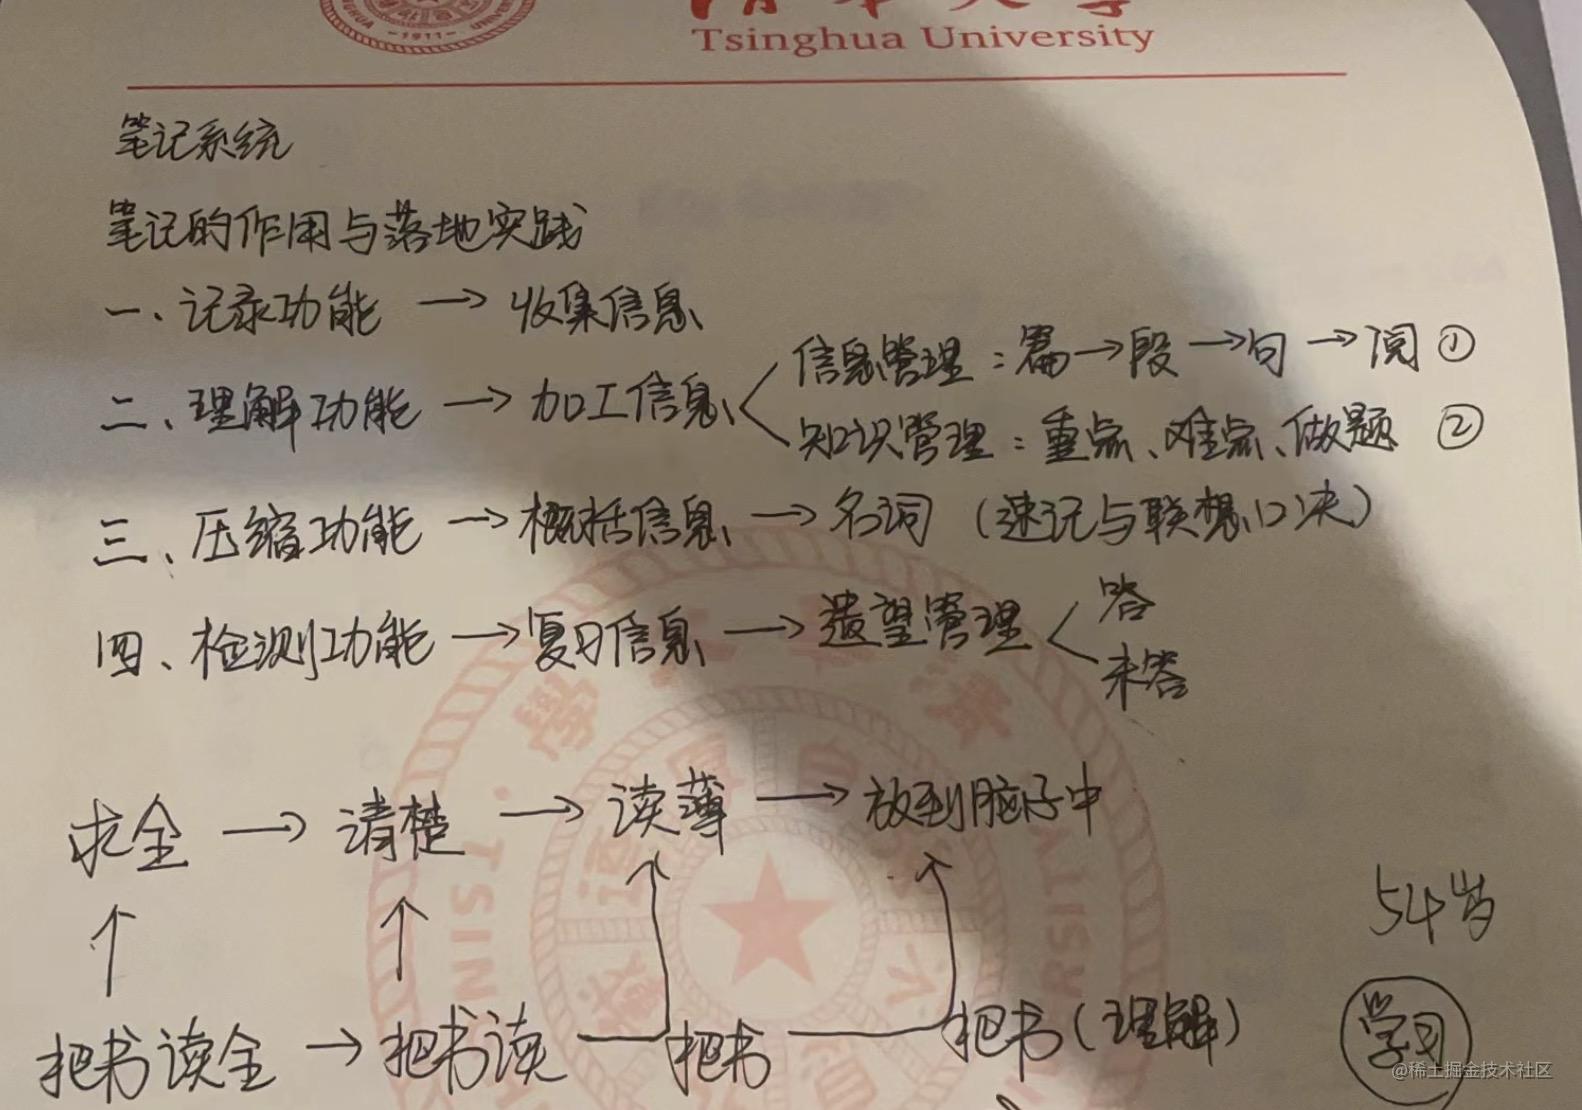 清华大学
Tsinghua University
-1911-
笔记系统
笔记的作用与落地实践
一、记录功能 → 收集信息
二、理解功能 → 加工信息 < 信息管理：篇→段→句→阅 ①
知识管理：重点、难点、做题 ②
三、压缩功能 → 概括信息 → 名词（速记与联想口决）
四、检测功能 → 复习信息 → 遗望管理 < 答
未答
求全 → 清楚 → 读薄 → 放到脑子中
54岁
把书读全 → 把书读 把书 把书（理解）
学习
@稀土掘金技术社区